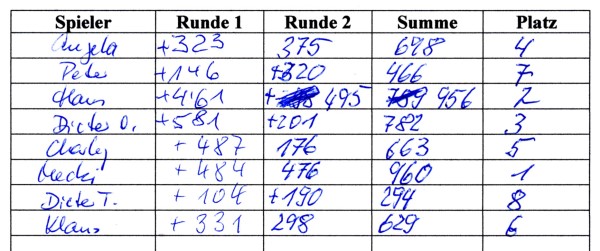 Spieler Runde 1 Runde 2 Summe Platz
Angela +323 375 698 4
Peter +146 +320 466 7
Hans +461 + 495 956 2
Dieter O. +581 +201 782 3
Charly + 487 176 663 5
Mecki + 484 476 960 1
Dieter T. + 104 +190 294 8
Klaus + 331 298 629 6